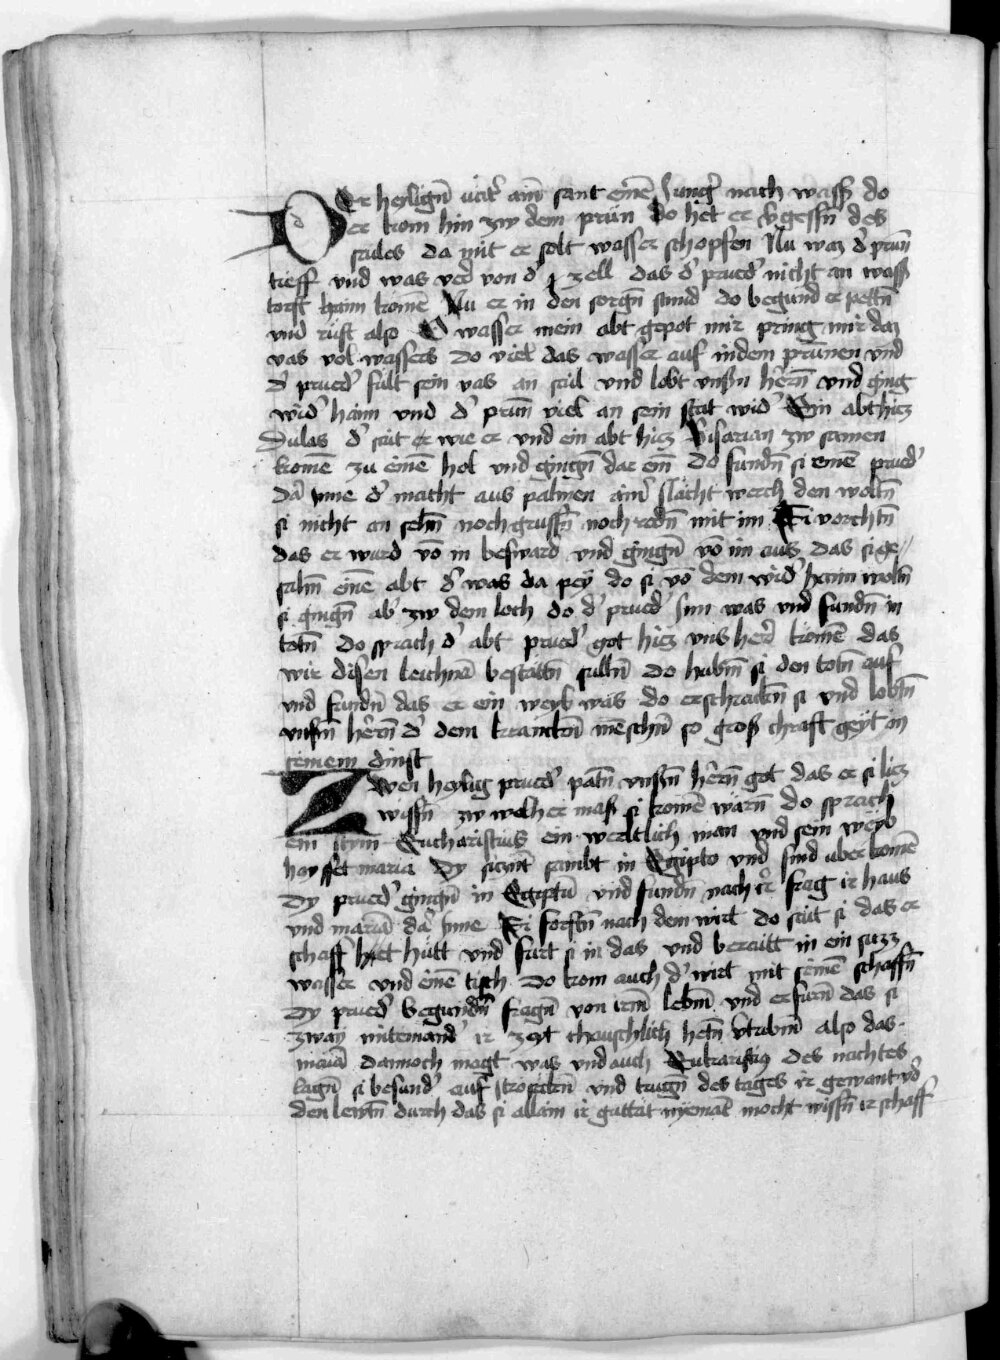 Der heyligñ vat' ain̄ sant einē Jung' nach wass' do
er kom hin zw dem prün do het er v'gessñ des
sailes da mit er solt wasser schopfen Nu waz d' prün
tieff vnd was verr von d' zell das d' prued' nicht an wass'
torst haim komē Nu er in den sorgñ stund do begund er pettñ
vnd rüft also O wasser mein abt gepot mir pring mir daz
vas vol wassers Do viel das wasser auf in dem prunnen vnd
d' prued' fült sein vas an sail vnd lobt vnsñ hērñ vnd ging
wid' haim vnd d' prun viel an sein stat wid' Ein abt hiez
Dulas d' sait er wie er vnd ein abt hiez Bisarian zw samen
komē zu einē hol vnd gingñ dar ein Do fundñ si einē prued'
da' inne d' macht aus palmen ain' slacht werch den woltñ
si nicht an sehñ noch grussñ noch redñ mit im Si vorchtñ
das er wurd vō in beswärd vnd gingñ vō im aus das si ge//
sahñ einē abt d' was da pey do si vō dem wid' haim woltñ
si gingñ ab' zw dem loch do d' prued' Inn was vnd fundñ in
totñ Do sprach d' abt prued' got hiez vns her' komē das
wir disen leichnā bestättñ sulln̄ Do hubñ si den totñ auf
vnd fundñ das er ein weyb was do erschrackñ si vnd lobtñ
vnsñ hērñ d' dem kranckñ mēschñ so groß chraft geyt in
seinem dinst
Zwen heylig prued' patñ vnsñ hērñ got das er si liez
wissñ zw welher maß si komē wärñ do sprach
ein stym Eucharistius ein werltlich man vnd sein weyb
haysset maria Dy sicynt sambt in Egipto vnd sind vber komē
Dy prued' gingñ in Egiptū vnd fundñ nach ir' frag ir haus
vnd mariā da' Inne Si forstñ nach dem wirt do sait si das er
schaff hiet hütt vnd furt si in das vnd beraitt in ein suzz
wasser vnd einē tisch Do kom auch d' wirt mit seinē schaffñ
Dy prued' begundñ fragñ von irm̄ lebñ vnd erfurñ das si
zway miteinand' ir zeyt cheuschlich hetñ v'tribñ also das
mariā dannoch magt was vnd auch Eukaristius des nachtes
lagñ si besund' auf stroseckñ vnd trugñ des tages ir gewant vō
den lewtñ durch das si allain ir guttat nyemāt mocht wissñ ir schaff